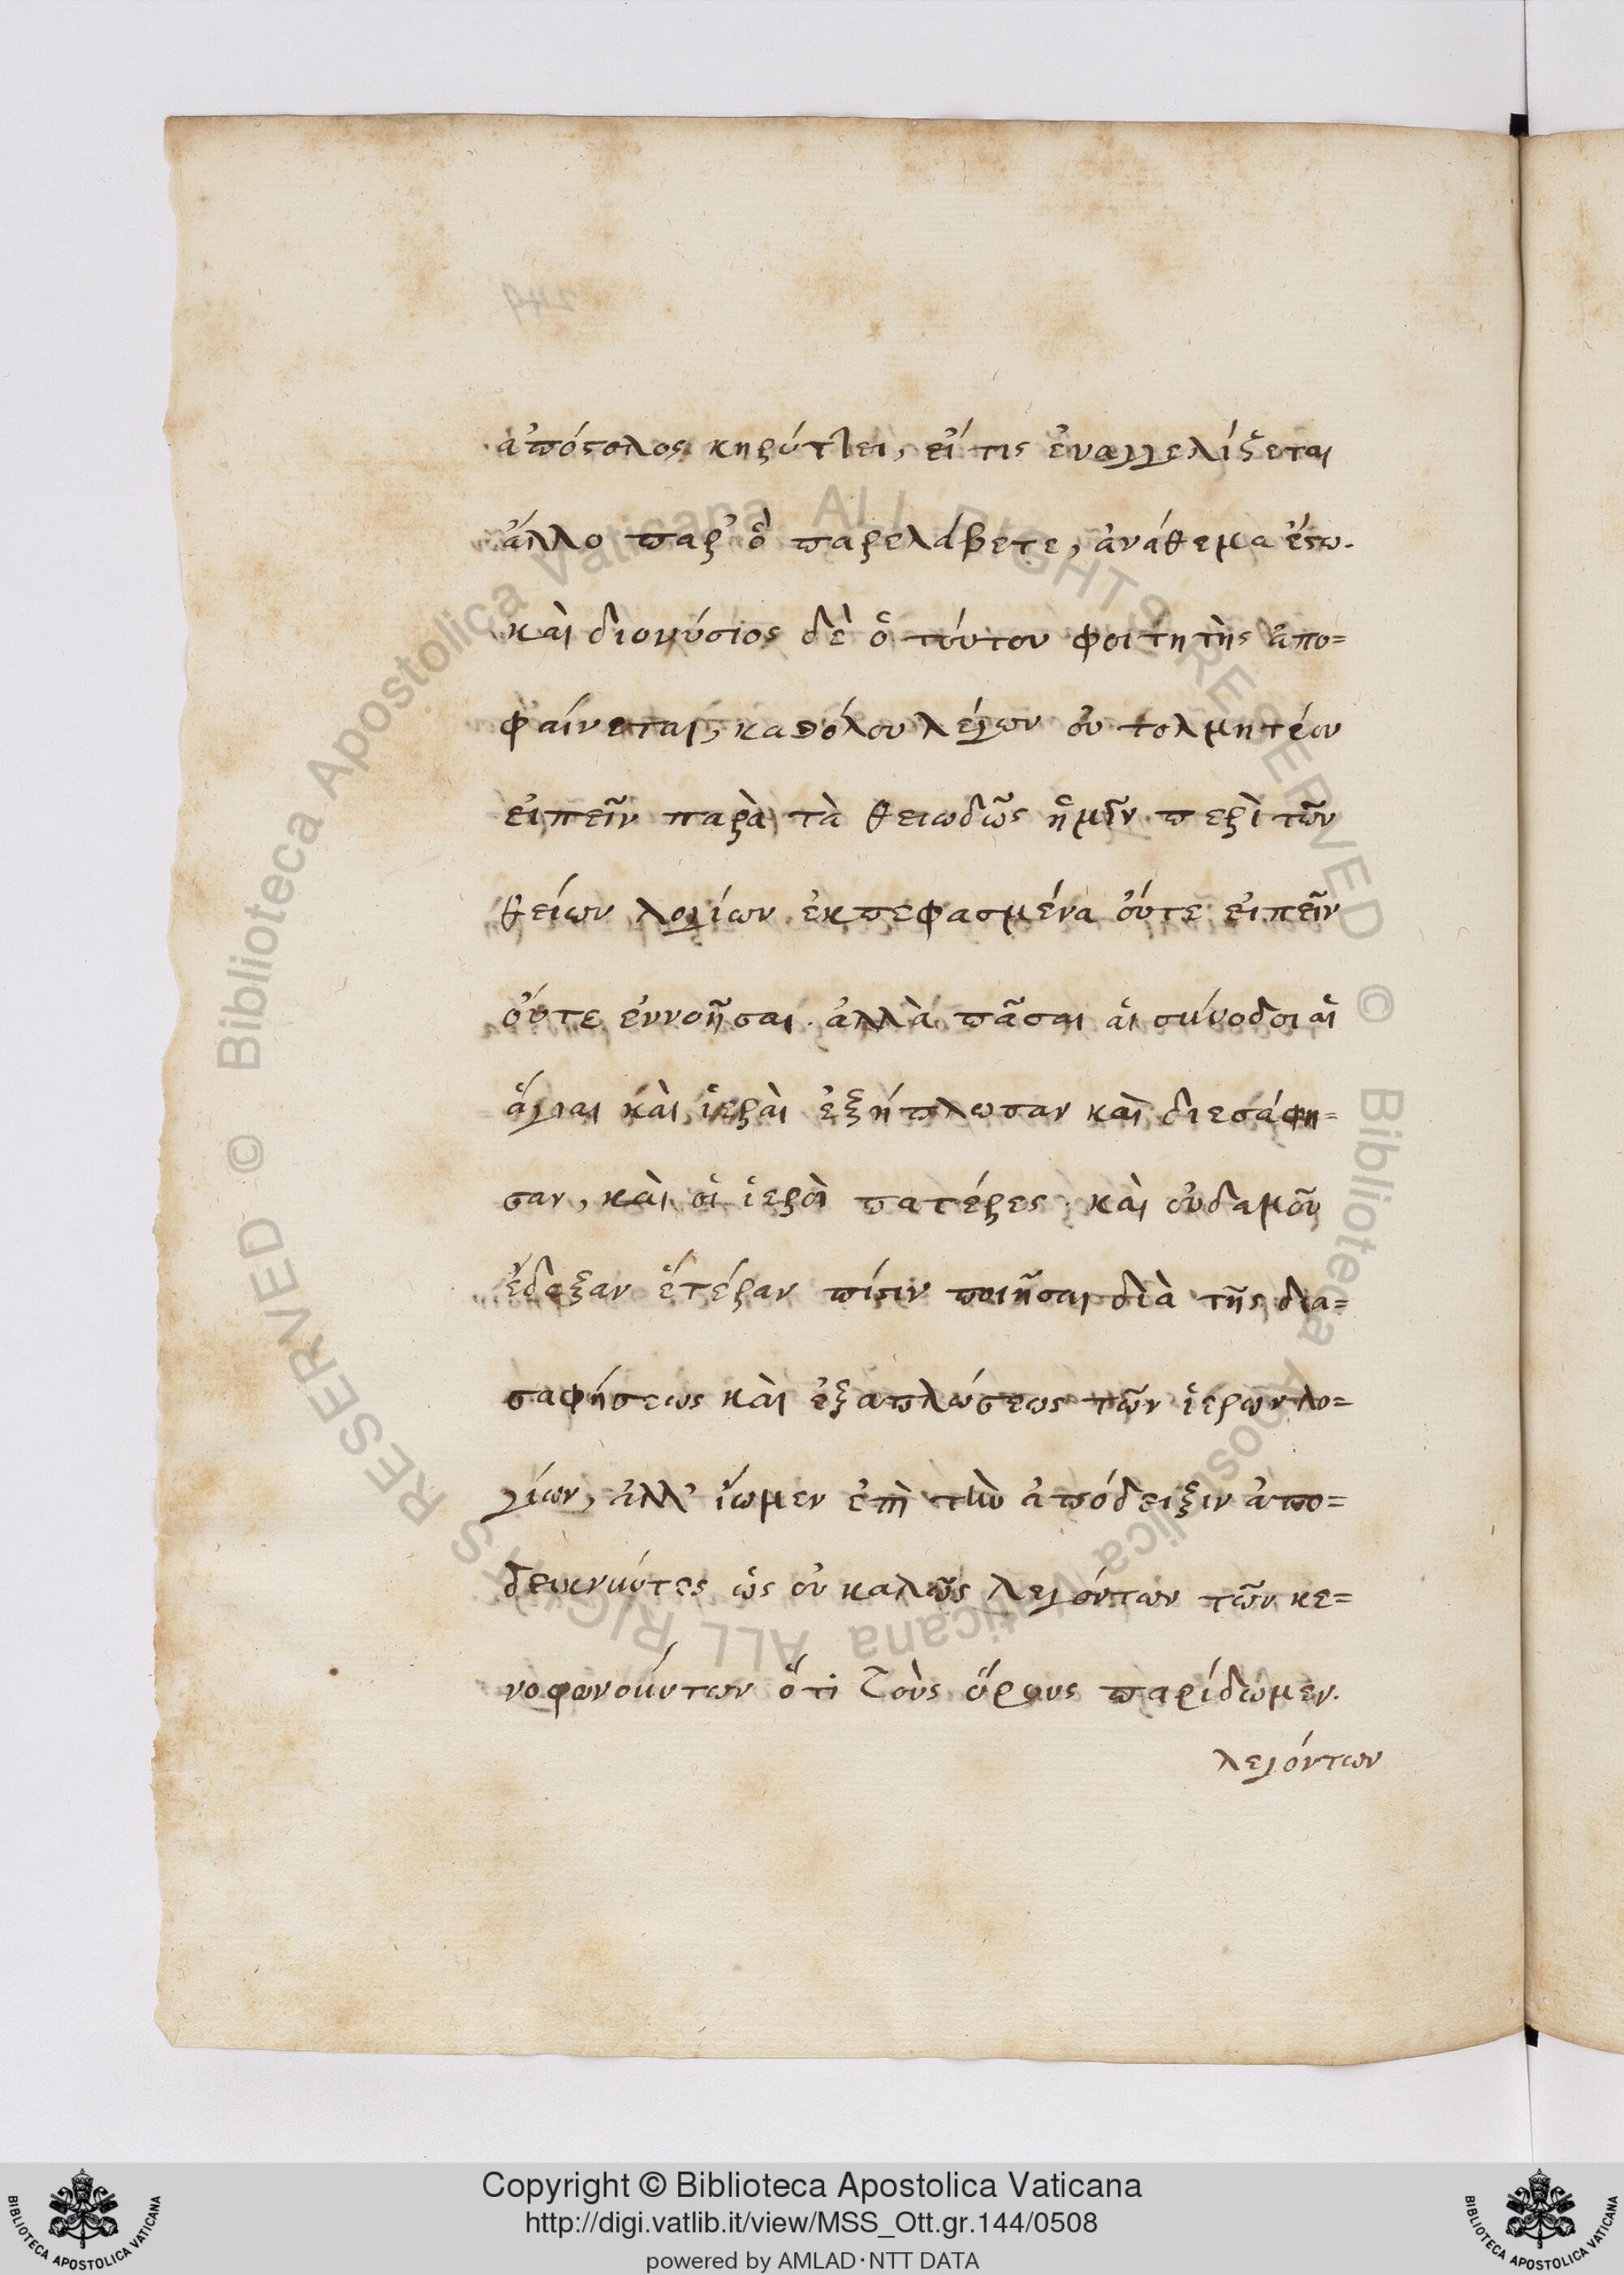 ἀπόστολος κηρύττει, εἴ τις ἐυαγγελίζεται
ἄλλο παρ' ὃ παρελάβετε, ἀνάθεμα ἔστω.
καὶ διονύσιος δὲ ὁ τούτου φοιτητὴς ἀπο=
φαίνεται, καθόλου λέγων οὐ τολμητέον
εἰπεῖν παρὰ τὰ θειωδῶς ἡμῖν περὶ τῶν
θείων λογίων ἐκπεφασμένα οὔτε εἰπεῖν
οὔτε ἐννοῆσαι. ἀλλὰ πᾶσαι αἱ σύνοδοι αἱ
ἅγιαι καὶ ἱεραὶ ἐξήπλωσαν καὶ διεσάφη=
σαν, καὶ οἱ ἱεροὶ πατέρες. καὶ οὐδαμοῦ
ἔδοξαν ἑτέραν πίστιν ποιῆσαι διὰ τῆς δια=
σαφήσεως καὶ ἐξαπλώσεως τῶν ἱερων λο=
γίων, ἀλλ' ἴωμεν ἐπὶ τὴν ἀπόδειξιν ἀπο=
δεικνύντες ὡς οὐ καλῶς λεγόντων τῶν κε=
νοφωνούντων ὅτι τοὺς ὅρους παρίδωμεν.
λεγόντων
Copyright © Biblioteca Apostolica Vaticana
http://digi.vatlib.it/view/MSS_Ott.gr.144/0508
powered by AMLAD·NTT DATA
BIBLIOTECA APOSTOLICA VATICANA
BIBLIOTECA APOSTOLICA VATICANA
© Biblioteca Apostolica Vaticana ALL RIGHTS RESERVED
© Biblioteca Apostolica Vaticana ALL RIGHTS RESERVED